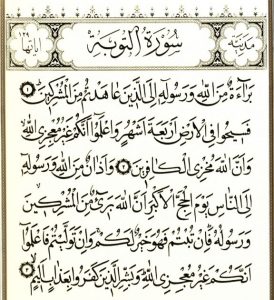 سُورَةُ التَّوْبَةِ
مدنية
آياتها ١٢٩
بَرَاءَةٌ مِنَ اللَّهِ وَرَسُولِهِ إِلَى الَّذِينَ عَاهَدْتُمْ مِنَ الْمُشْرِكِينَ ١
فَسِيحُوا فِي الْأَرْضِ أَرْبَعَةَ أَشْهُرٍ وَاعْلَمُوا أَنَّكُمْ غَيْرُ مُعْجِزِي اللَّهِ
وَأَنَّ اللَّهَ مُخْزِي الْكَافِرِينَ ٢ وَأَذَانٌ مِنَ اللَّهِ وَرَسُولِهِ
إِلَى النَّاسِ يَوْمَ الْحَجِّ الْأَكْبَرِ أَنَّ اللَّهَ بَرِيءٌ مِنَ الْمُشْرِكِينَ
وَرَسُولُهُ فَإِنْ تُبْتُمْ فَهُوَ خَيْرٌ لَكُمْ وَإِنْ تَوَلَّيْتُمْ فَاعْلَمُوا
أَنَّكُمْ غَيْرُ مُعْجِزِي اللَّهِ وَبَشِّرِ الَّذِينَ كَفَرُوا بِعَذَابٍ أَلِيمٍ ٣